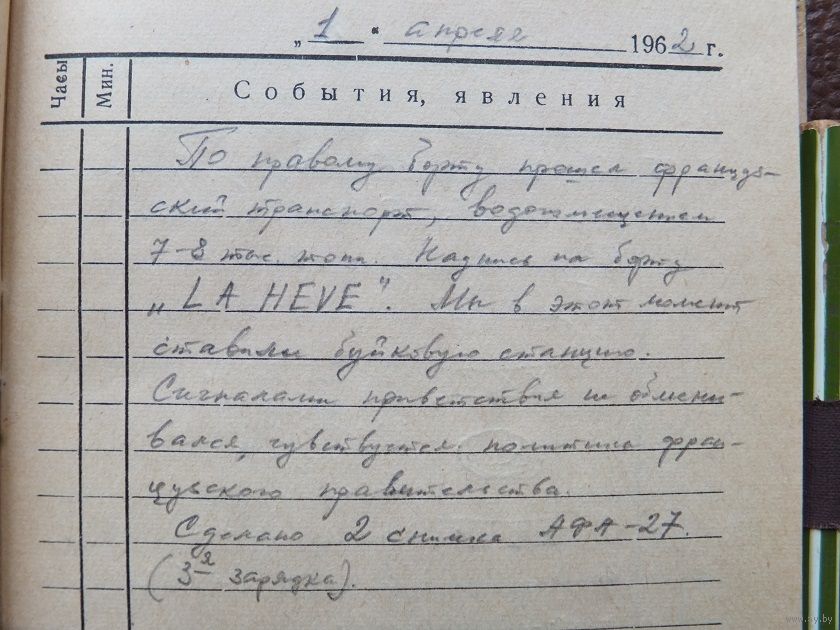 „ 1 “ апреля 1962 г.
Часы Мин. События, явления
По правому борту прошел француз-
ский транспорт, водоизмещением
7-8 тыс. тонн. Надпись на борту
„LA HEVE". Мы в этот момент
ставили буйковую станцию.
Сигналами приветствия не обмени-
вался, чувствуется политика фран-
цузского правительства.
Сделано 2 снимка АФА-27.
(3-я зарядка).
www.ay.by